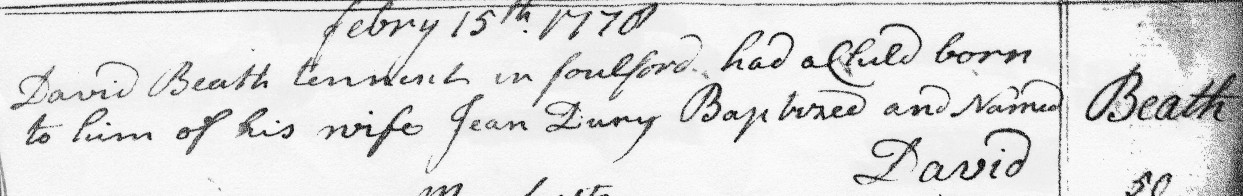 febry 15th. 1778
David Beath tennent in foulford had a Child born
to him of his wife Jean Dury Baptized and Named
David
Beath
50